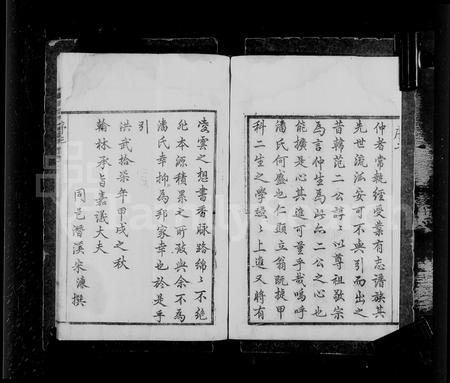 序二
仲者常執經受業有志譜族其
先世流派安可不與引而出之
昔韓范二公諄〻以尊祖敬宗
為言仲生為此亦二公之心也
能擴是心其進可量乎哉嗚呼
潘氏何盛也仁顯立翁既捷甲
科二生之學駸〻上進又將有
凌雲之想書香脉路綿〻不絕
非本源積累之所致與余不為
潘氏幸抑為邦家幸也於是乎
引
洪武拾柒年甲戌之秋
翰林承旨嘉議大夫
同邑潛溪宋濂撰